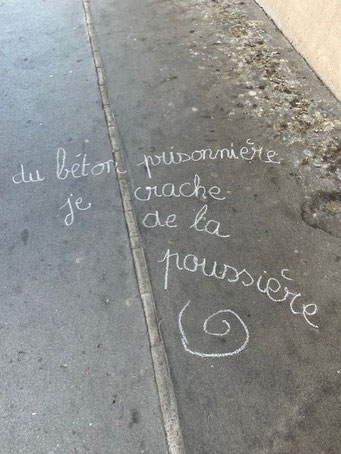 du béton prisonnière
je crache
de la
poussière